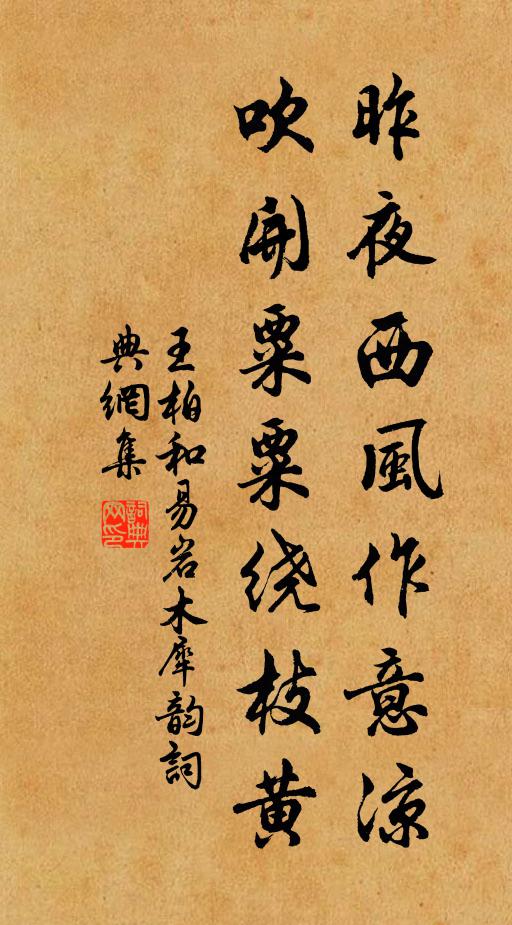 昨夜西風作意涼
吹開粟粟绕枝黄
王柏和易岩木犀韵詞
典網集
詞典網印